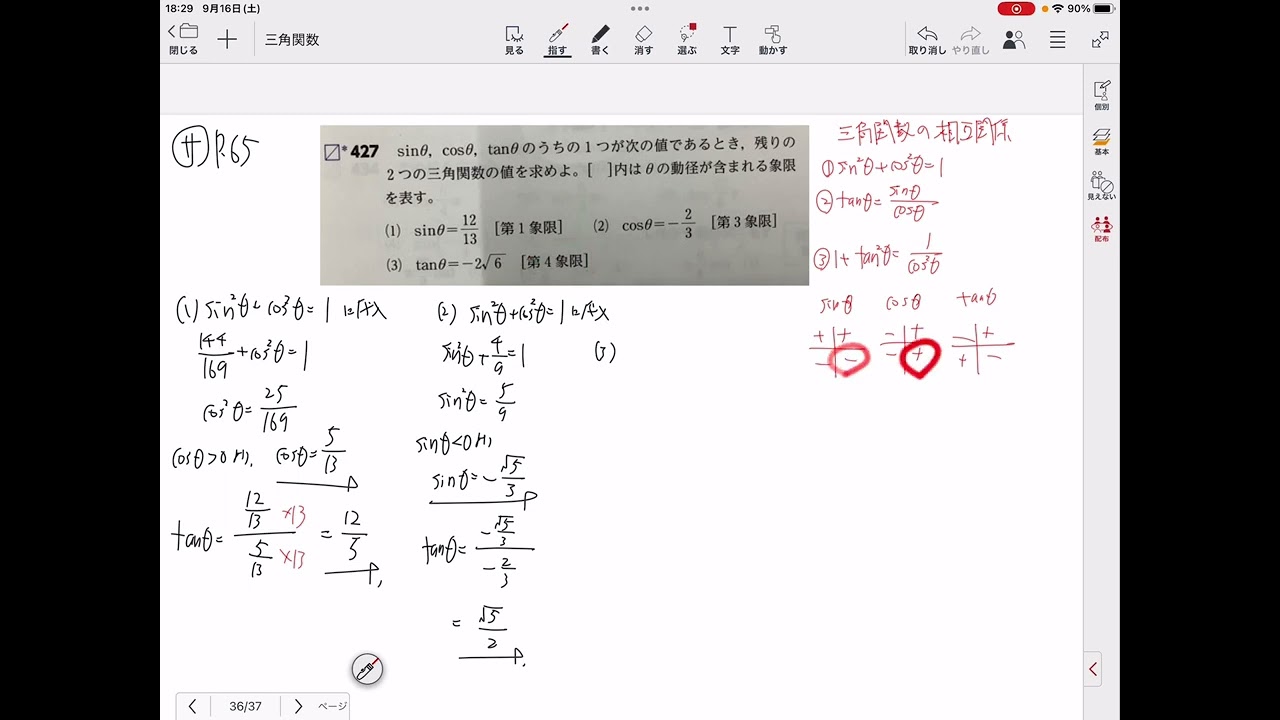 18:29 9月16日(土)
90%
閉じる
三角関数
見る 指す 書く 消す 選ぶ 文字 動かす
取り消し やり直し
個別
基本
見えない
配布
サ P.65
*427 sinθ, cosθ, tanθのうちの1つが次の値であるとき，残りの
2つの三角関数の値を求めよ。[ ]内はθの動径が含まれる象限
を表す。
(1) sinθ=12/13 [第1象限] (2) cosθ=-2/3 [第3象限]
(3) tanθ=-2√6 [第4象限]
三角関数の相互関係
① sin²θ+cos²θ=1
② tanθ=sinθ/cosθ
③ 1+tan²θ=1/cos²θ
sinθ cosθ tanθ
+ + - + - +
- - - + + -
(1) sin²θ+cos²θ=1に代入
144/169+cos²θ=1
cos²θ=25/169
cosθ>0より, cosθ=5/13
tanθ=12/13 ×13 / 5/13 ×13 =12/5
(2) sin²θ+cos²θ=1に代入
sin²θ+4/9=1
sin²θ=5/9
sinθ<0より
sinθ=-√5/3
tanθ=-√5/3 / -2/3
=√5/2
(3)
36/37 ページ